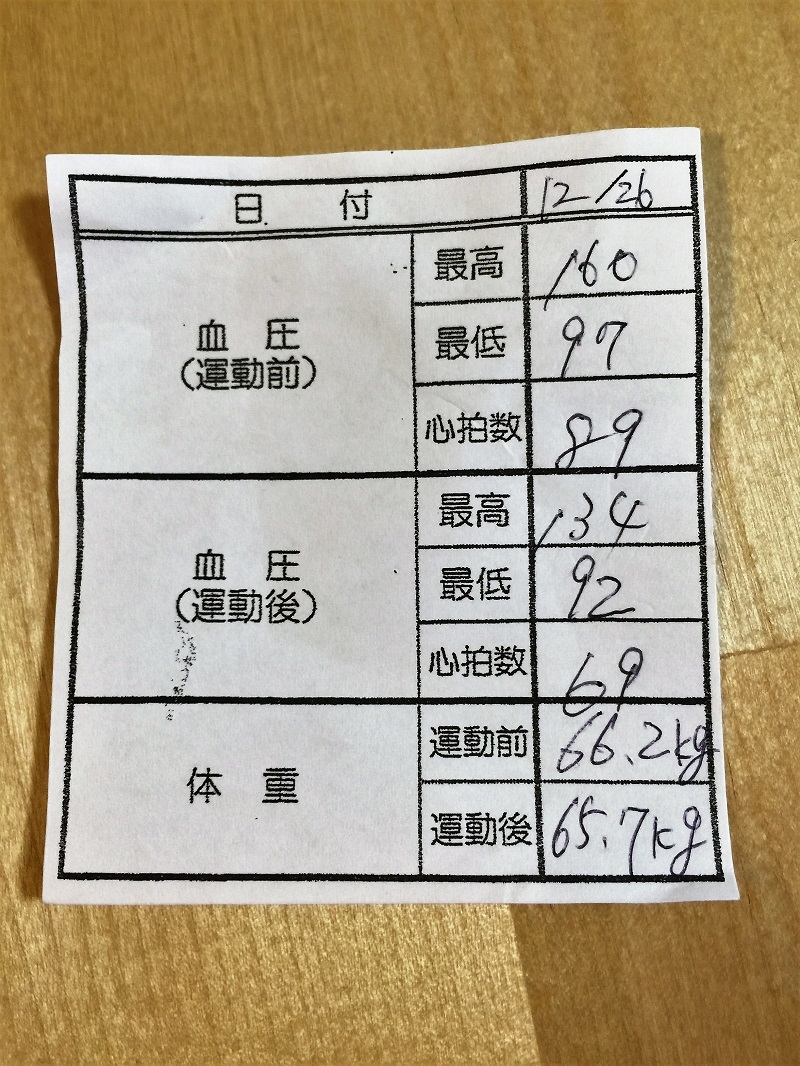 日 付 12/26
血 圧
(運動前)
最高 160
最低 97
心拍数 89
血 圧
(運動後)
最高 134
最低 92
心拍数 69
体 重
運動前 66.2kg
運動後 65.7kg